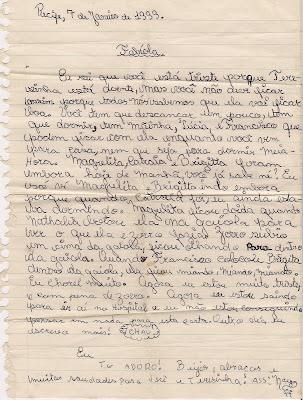 Recife, 7 de Janeiro de 1999.
Fabíola,
Eu sei que você está triste porque Tere-
zinha está doente, mas você não deve ficar
assim porque todos nós sabemos que ela vai ficar
boa. Você tem que descansar um pouco, tem
que dormir, tem Mainha, Lúcia e Francisco que
podem ficar com ela enquanto você vem
para casa, nem que seja para dormir meia
Hora. Maquelita, e Brigitte foram
embora hoje de manhã, você já sabe né? Eu
não vi Maquelita e Brigitte indo embora
porque quando foi, eu ainda esta-
va dormindo. Maquelita ficou doida quando
Nathalia a gaiola para
ver o que ela e Zorro Zorro subiu
em cima da gaiola, ficou olhando para dentro
da gaiola. Quando Francisco colocou Brigitte
dentro da gaiola, ela ficou miando, miando, miando.
Eu chorei muito. Agora eu estou muito triste,
e com pena de Zorro. Agora eu estou saindo
para ir aí no hospital e eu não estou conseguindo
pensar em nada para esta carta. Outro dia eu
escrevo mais! TCHAU
Eu
Te ADORO! Beijos, abraços e
muitas saudades para você e Terezinha! ASS: